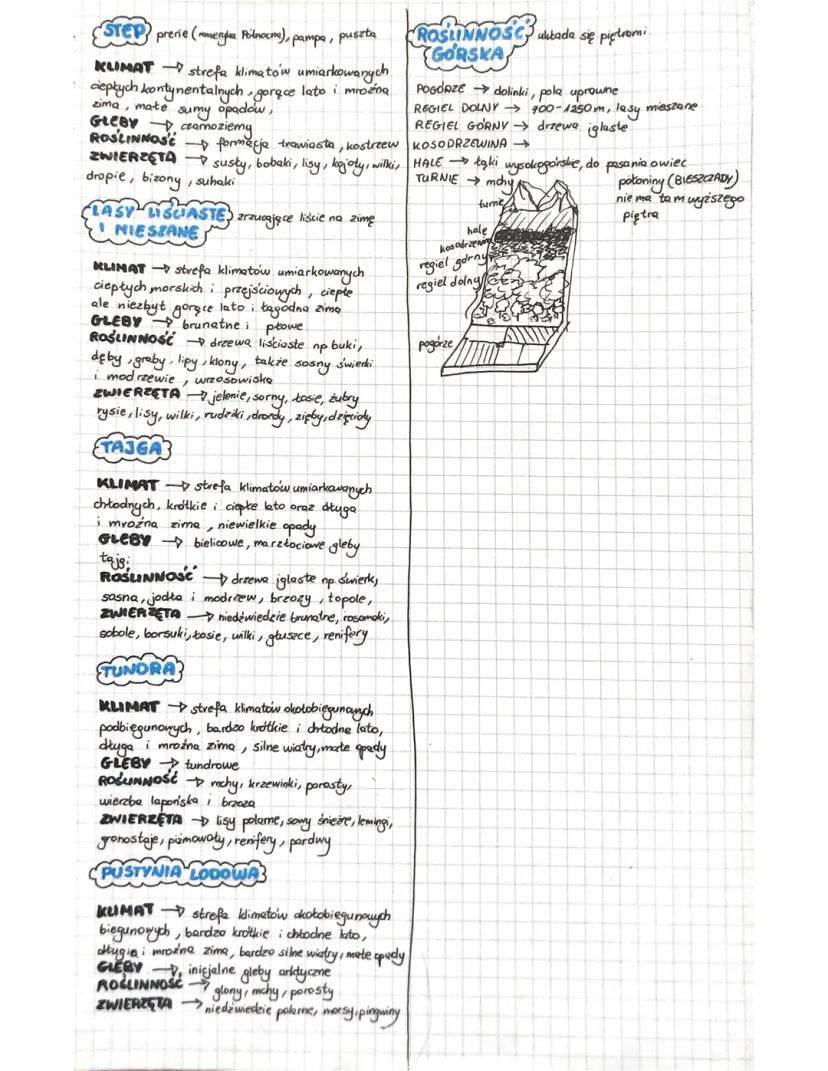 STEP prerie (Ameryka Północna), pampa, puszta
KLIMAT → strefa klimatów umiarkowanych
ciepłych kontynentalnych, gorące lato i mroźna
zima, małe sumy opadów,
GLEBY → czarnoziemy
ROŚLINNOŚĆ → formacja trawiasta, kostrzew
ZWIERZĘTA → susły, bobaki, lisy, kojoty, wilki,
dropie, bizony, suhaki
LASY LIŚCIASTE
I MIESZANE zrzucające liście na zimę
KLIMAT → strefa klimatów umiarkowanych
ciepłych morskich i przejściowych, ciepłe
ale niezbyt gorące lato i łagodna zima
GLEBY → brunatne i płowe
ROŚLINNOŚĆ → drzewa liściaste np buki,
dęby, graby, lipy, klony, także sosny świerki
i modrzewie, wrzosowiska
ZWIERZĘTA → jelenie, sarny, łosie, żubry
rysie, lisy, wilki, rudziki, drozdy, zięby, dzięcioły
TAJGA
KLIMAT → strefa klimatów umiarkowanych
chłodnych, krótkie i ciepłe lato oraz długa
i mroźna zima, niewielkie opady
GLEBY → bielicowe, marzłociowe gleby
tajgi
ROŚLINNOŚĆ → drzewa iglaste np. świerk,
sosna, jodła i modrzew, brzozy, topole,
ZWIERZĘTA → niedźwiedzie brunatne, rosomaki,
sobole, borsuki, łosie, wilki, głuszce, renifery
TUNDRA
KLIMAT → strefa klimatów okołobiegunowych
podbiegunowych, bardzo krótkie i chłodne lato,
długa i mroźna zima, silne wiatry, małe opady
GLEBY → tundrowe
ROŚLINNOŚĆ → mchy, krzewinki, porosty,
wierzba lapońska i brzoza
ZWIERZĘTA → lisy polarne, sowy śnieżne, lemingi,
gronostaje, piżmowoły, renifery, pardwy
PUSTYNIA LODOWA
KLIMAT → strefa klimatów okołobiegunowych
biegunowych, bardzo krótkie i chłodne lato,
długa i mroźna zima, bardzo silne wiatry, małe opady
GLEBY → inicjalne gleby arktyczne
ROŚLINNOŚĆ → glony, mchy, porosty
ZWIERZĘTA → niedźwiedzie polarne, morsy, pingwiny
ROŚLINNOŚĆ
GÓRSKA układa się piętrami
POGÓRZE → dolinki, pola uprawne
REGIEL DOLNY → 700-1250m, lasy mieszane
REGIEL GÓRNY → drzewa iglaste
KOSODRZEWINA →
HALE → łąki wysokogórskie, do pasania owiec
TURNIE → mchy
połoniny (BIESZCZADY)
nie ma tam wyższego
piętra
turnie
hale
kosodrzewina
regiel górny
regiel dolny
pogórze